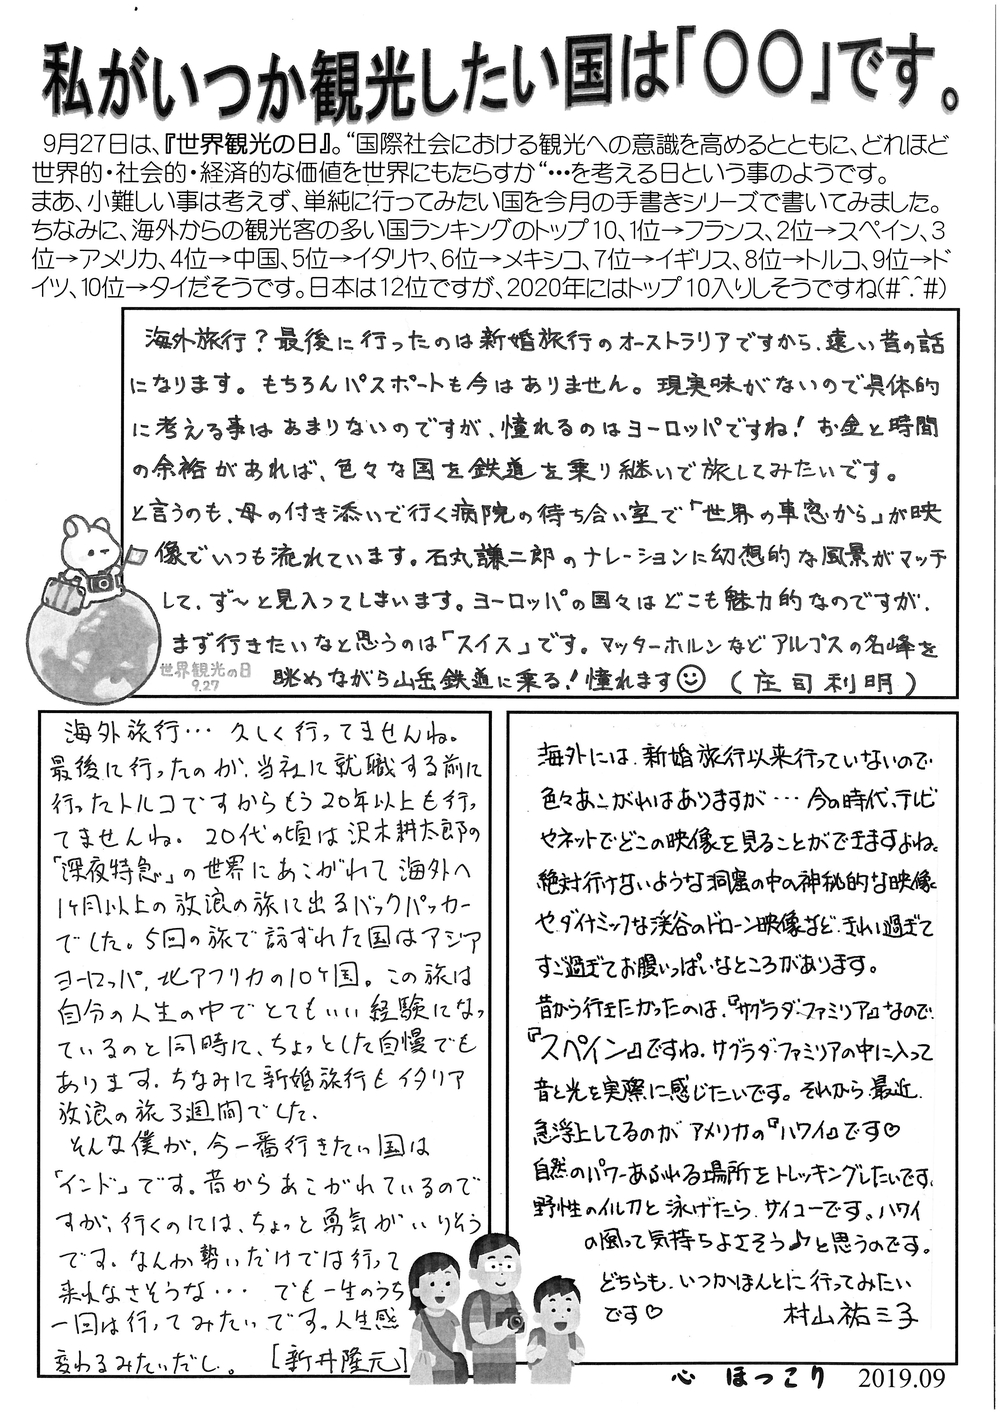 私がいつか観光したい国は「〇〇」です。
9月27日は、『世界観光の日』。“国際社会における観光への意識を高めるとともに、どれほど
世界的・社会的・経済的な価値を世界にもたらすか“…を考える日という事のようです。
まあ、小難しい事は考えず、単純に行ってみたい国を今月の手書きシリーズで書いてみました。
ちなみに、海外からの観光客の多い国ランキングのトップ10、1位→フランス、2位→スペイン、3
位→アメリカ、4位→中国、5位→イタリヤ、6位→メキシコ、7位→イギリス、8位→トルコ、9位→ド
イツ、10位→タイだそうです。日本は12位ですが、2020年にはトップ10入りしそうですね(#^.^#)
海外旅行？最後に行ったのは新婚旅行のオーストラリアですから、遠い昔の話
になります。もちろんパスポートも今はありません。現実味がないので具体的
に考える事はあまりないのですが、憧れるのはヨーロッパですね！お金と時間
の余裕があれば、色々な国を鉄道を乗り継いで旅してみたいです。
と言うのも、母の付き添いで行く病院の待ち合い室で「世界の車窓から」が映
像でいつも流れています。石丸謙二郎のナレーションに幻想的な風景がマッチ
して、ず〜と見入ってしまいます。ヨーロッパの国々はどこも魅力的なのですが、
まず行きたいなと思うのは「スイス」です。マッターホルンなどアルプスの名峰を
眺めながら山岳鉄道に乗る！憧れます☺ (庄司利明)
世界観光の日
9.27
海外旅行… 久しく行ってませんね。
最後に行ったのが、当社に就職する前に
行ったトルコですからもう20年以上も行っ
てませんね。20代の頃は沢木耕太郎の
「深夜特急」の世界にあこがれて海外へ
1ヶ月以上の放浪の旅に出るバックパッカー
でした。5回の旅で訪ずれた国はアジア
ヨーロッパ、北アフリカの10ヶ国。この旅は
自分の人生の中でとてもいい経験になっ
ているのと同時に、ちょっとした自慢でも
あります。ちなみに新婚旅行もイタリア
放浪の旅3週間でした、
そんな僕が、今一番行きたい国は
「インド」です。昔からあこがれているので
すが、行くのには、ちょっと勇気がいりそう
です。なんか勢いだけでは行って
来れなさそうな… でも一生のうち
一回は行ってみたいです。人生感
変わるみたいだし。 [新井隆元]
海外には、新婚旅行以来行っていないので
色々あこがれはありますが… 今の時代、テレビ
やネットでどこの映像を見ることができますよね。
絶対行けないような洞窟の中の神秘的な映像
や、ダイナミックな渓谷のドローン映像など、きれい過ぎて
すご過ぎてお腹いっぱいなところがあります。
昔から行きたかったのは、『サグラダ・ファミリア』なので、
『スペイン』ですね。サグラダ・ファミリアの中に入って
音と光を実際に感じたいです。それから、最近、
急浮上してるのがアメリカの『ハワイ』です♡
自然のパワーあふれる場所をトレッキングしたいです。
野性のイルカと泳げたら、サイコーです。ハワイ
の風って気持ちよさそう♪と思うのです。
どちらも、いつかほんとに行ってみたい
です♡ 村山祐三子
心 ほっこり 2019.09